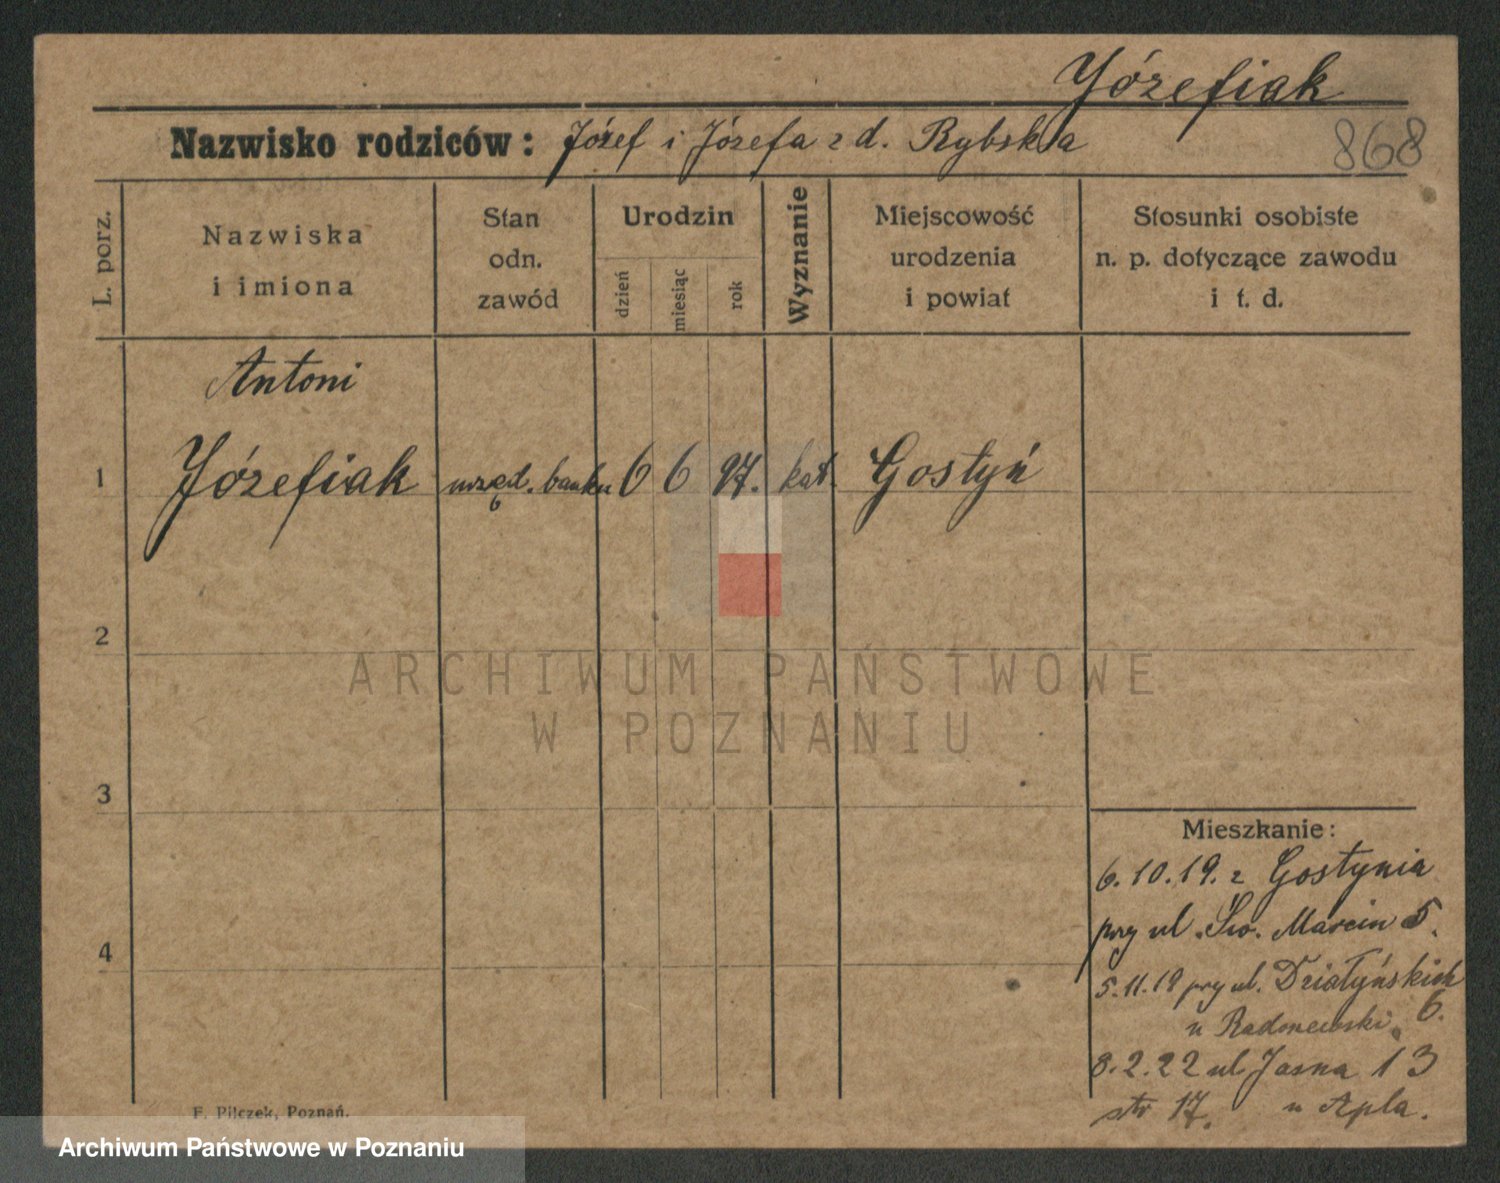 Józefiak
Nazwisko rodziców: Józef i Józefa z d. Rybska
868
L. porz.
Nazwiska
i imiona
Stan
odn.
zawód
Urodzin
dzień
miesiąc
rok
Wyznanie
Miejscowość
urodzenia
i powiat
Stosunki osobiste
n. p. dotyczące zawodu
i t. d.
Antoni
1 Józefiak urzęd. banku 6 6 97. kat. Gostyń
2
ARCHIWUM PAŃSTWOWE
W POZNANIU
3
Mieszkanie:
6.10.19. z Gostynia
przy ul. Św. Marcin 5.
4
5.11.19 przy ul. Działyńskich
u Radonewski 6.
8.2.22 ul Jasna 13
str 17. u Apla.
F. Pilczek, Poznań.
Archiwum Państwowe w Poznaniu